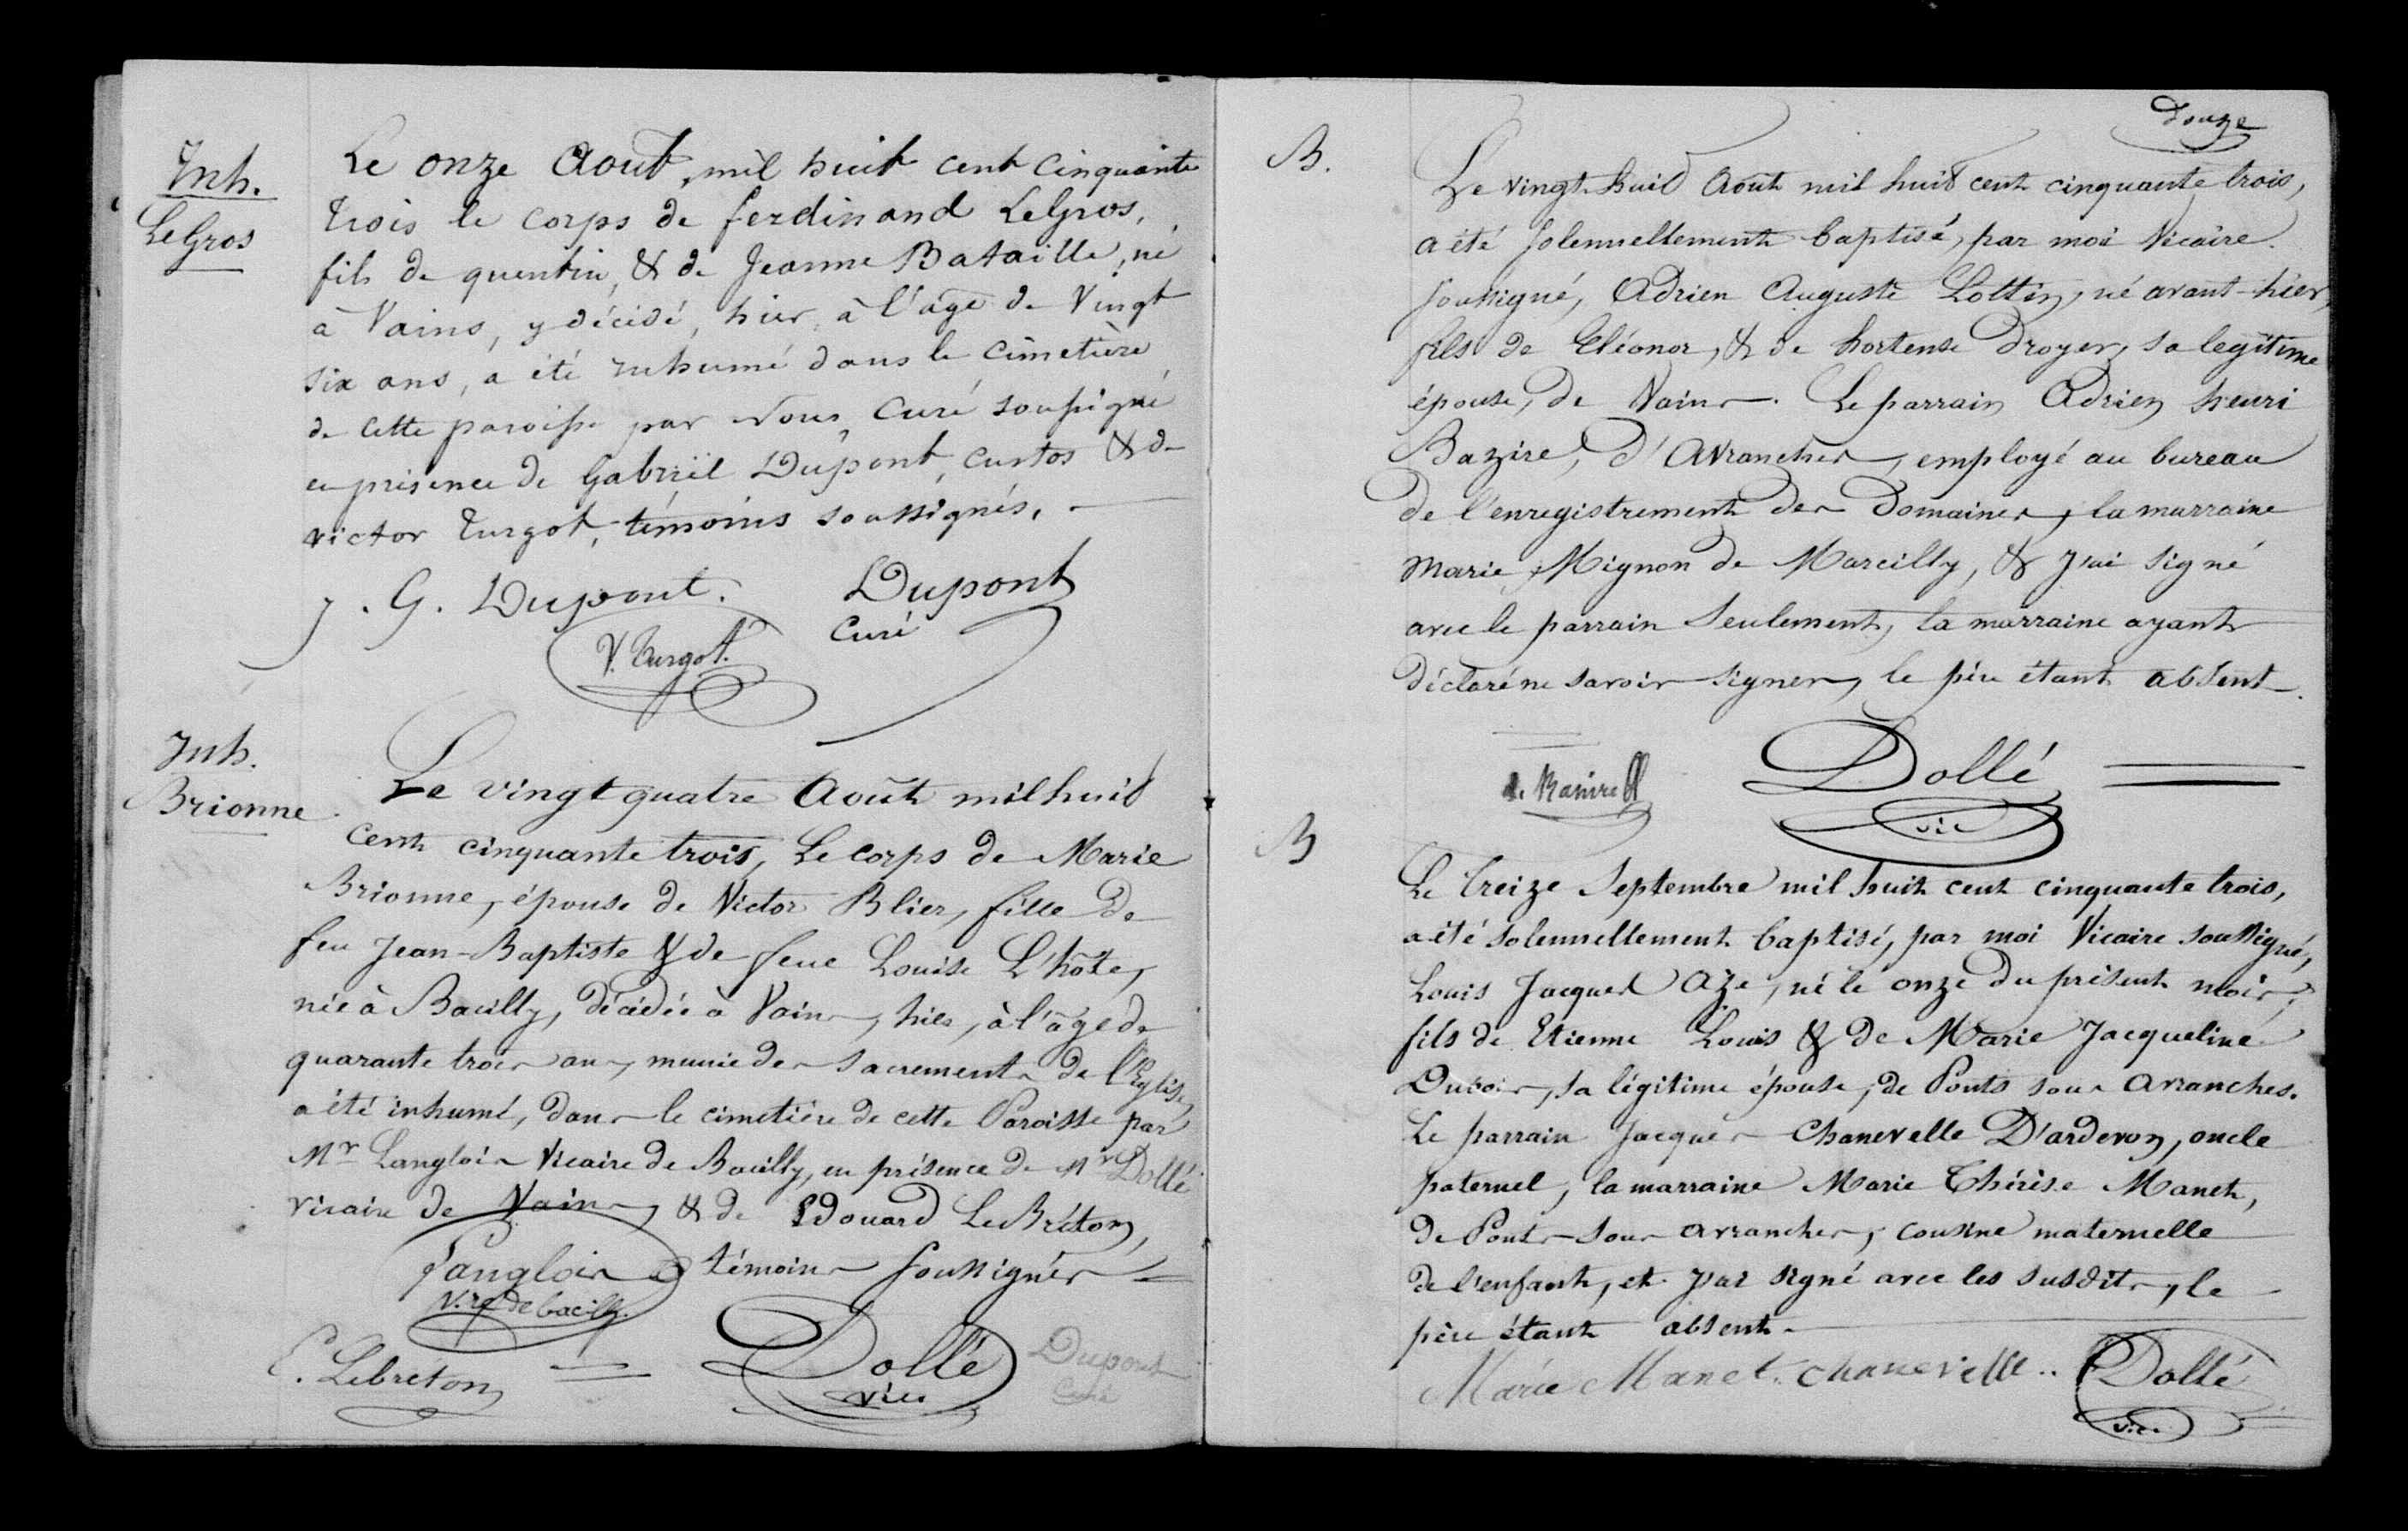 Inh.
LeGros
Le onze Aout, mil huit cent cinquante
trois le corps de ferdinand LeGros,
fils de quentin, & de Jeanne Bataille, né
à Vains, y décédé, hier, à l'age de Vingt
six ans, a été inhumé dans le cimetière
de cette paroisse par Nous, Curé soussigné
en présence de Gabriël Dupont, custos & de
victor Turgot, témoins soussignés.
J. G. Dupont. Dupont
Curé
V. Turgot.
Inh.
Brionne
Le vingt quatre Août mil huit
cent cinquante trois, Le corps de Marie
Brionne, épouse de Victor Blier, fille de
feu Jean-Baptiste & de feue Louise L'hôte,
née à Bacilly, décédée à Vains, hier, à l'âge de
quarante trois ans, munie des sacrements de l'Eglise
a été inhumé, dans le cimetière de cette Paroisse par
Mr Langlois Vicaire de Bacilly, en présence de Mr Dollé
vicaire de Vains, & de Edouard LeBréton,
témoins soussignés
Langlois
V.re de bacilly.
E. Lebreton Dollé Dupont
vic Curé
Douze
B.
Le vingt huit Août mil huit cent cinquante trois,
a été solennellement baptisé, par moi Vicaire
soussigné, Adrien Auguste Lottin, né avant-hier,
fils de Eléonor, & de hortense Droyer, sa legitime
épouse, de Vains. Le parrain Adrien henri
Bazire, d'Avranches, employé au bureau
de l'enregistrement des Domaines, la marraine
Marie Mignon de Marcilly, & j'ai signé
avec le parrain Seulement, la marraine ayant
déclaré ne savoir signer, le père étant absent.
Dollé
vic
B
Le treize Septembre mil huit cent cinquante trois,
a été solennellement baptisé, par moi Vicaire soussigné,
Louis Jacques Azé, né le onze du présent mois,
fils de Etienne Louis & de Marie Jacqueline
Dubois, sa légitime épouse, de Ponts sous Avranches.
Le parrain Jacques Chanevelle D'ardevon, oncle
paternel, la marraine Marie Thérèse Manet,
de Ponts sous Avranches, cousine maternelle
de l'enfant, et j'ai signé avec les susdits, le
père étant absent.
Marie Manet. Chanevelle.. Dollé
vic.